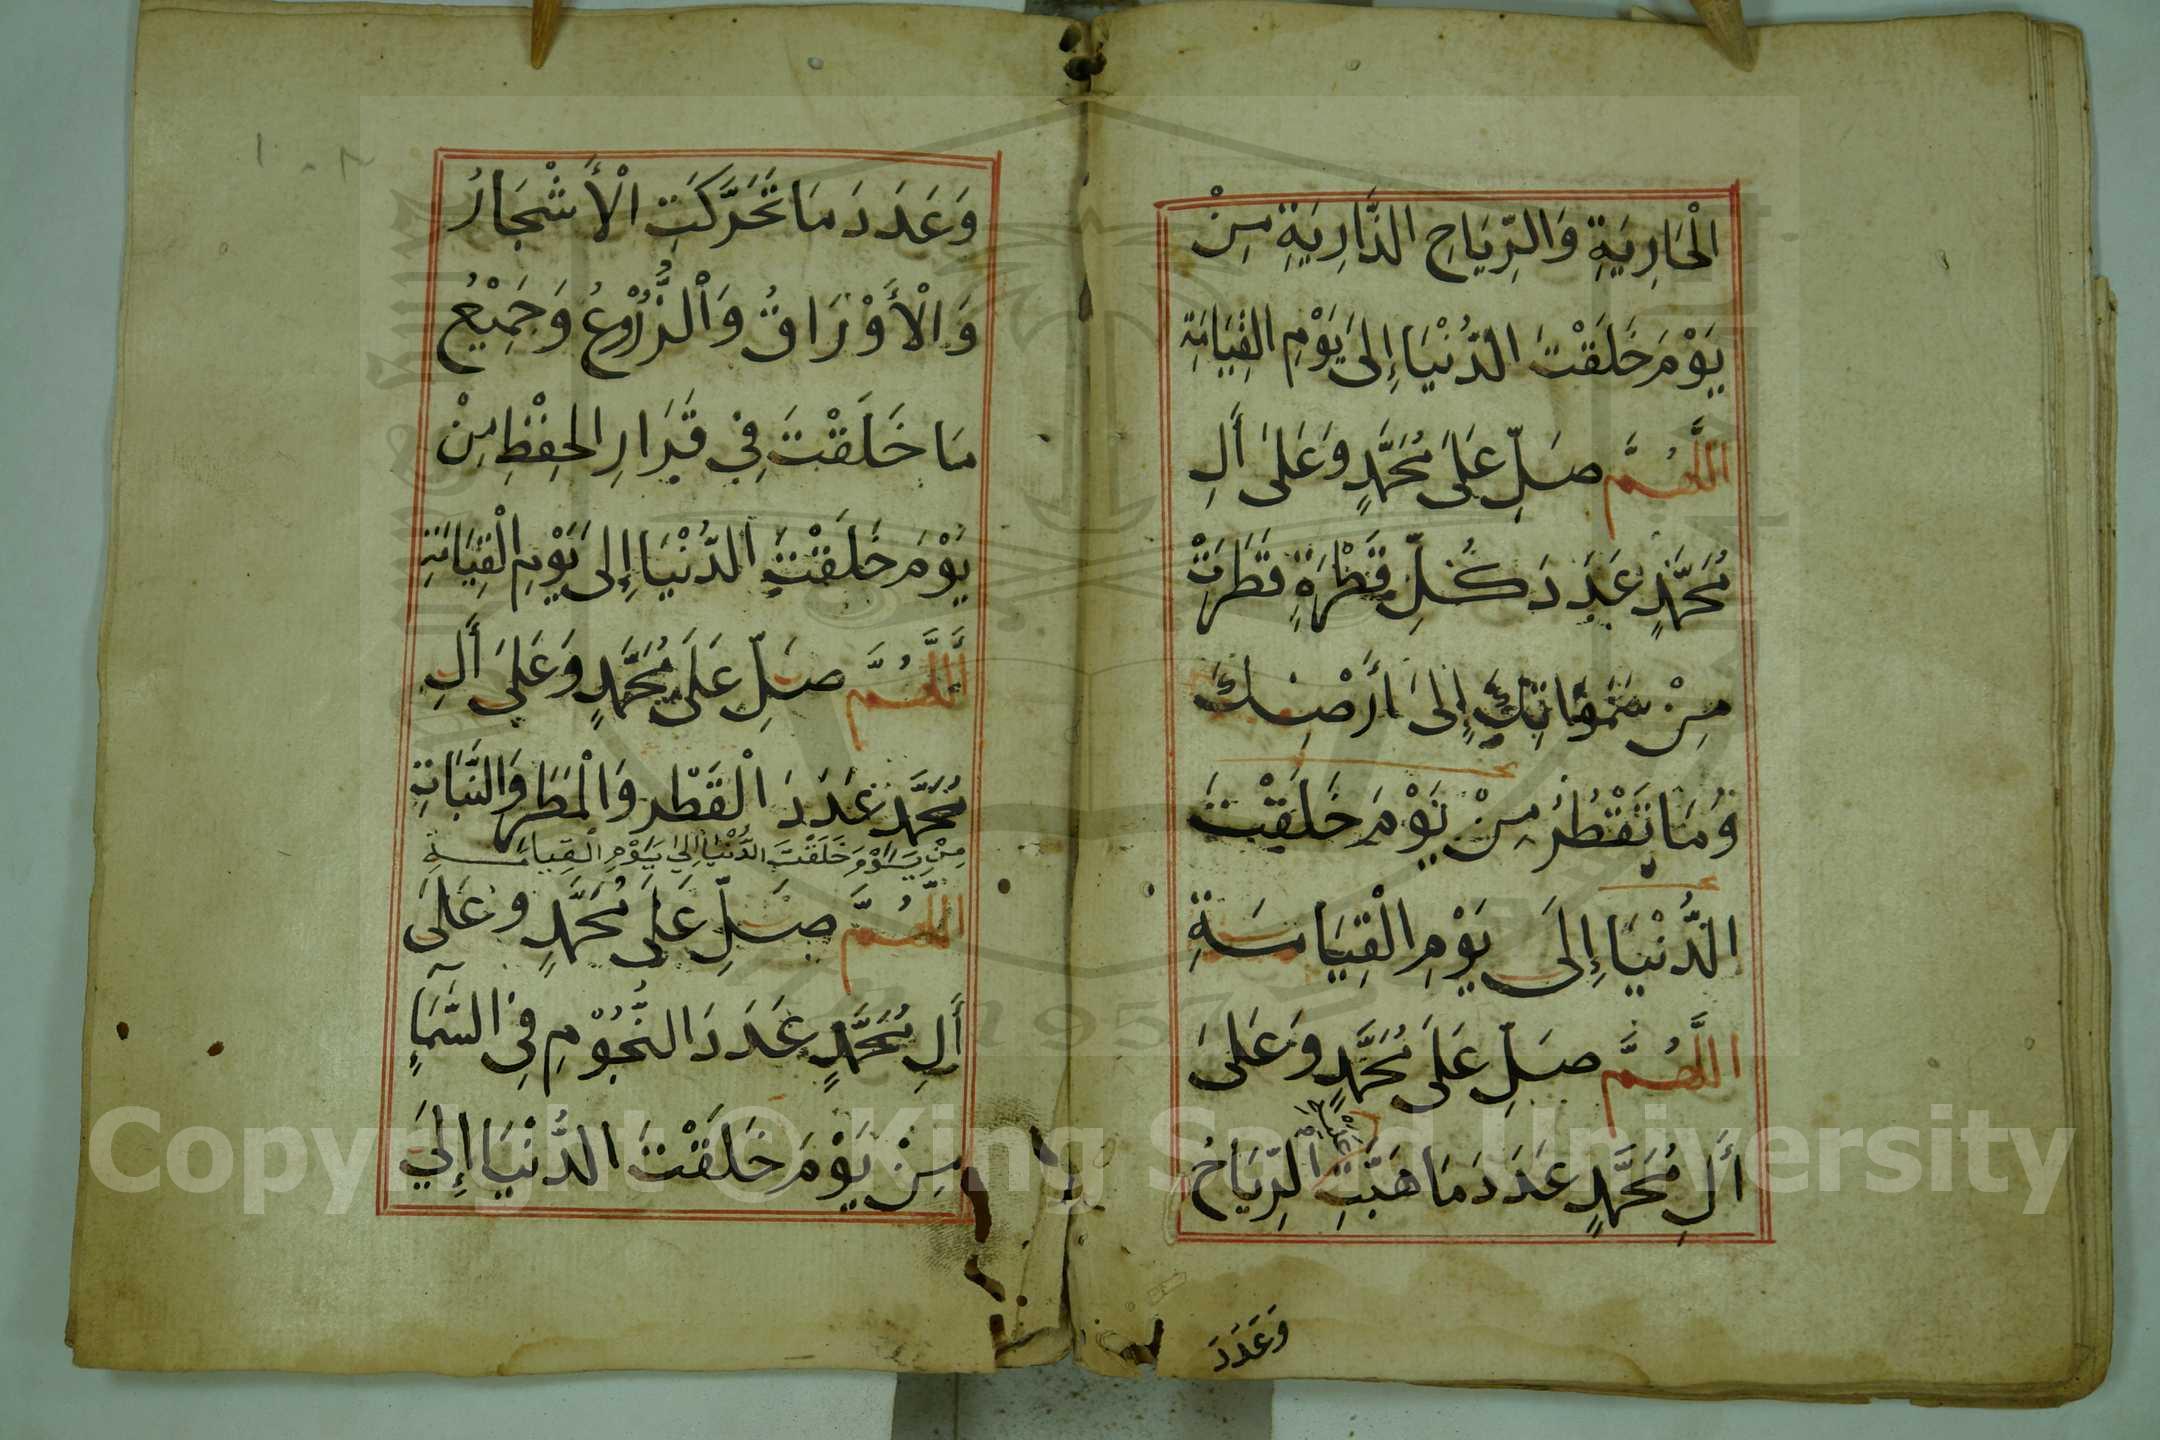 الْجَارِيَةِ وَالرِّيَاحِ الذَّارِيَةِ مِنْ
يَوْمَ خَلَقْتَ الدُّنْيَا إِلَى يَوْمِ الْقِيَامَةِ
اللَّهُمَّ صَلِّ عَلَى مُحَمَّدٍ وَعَلَى أَلِ
مُحَمَّدٍ عَدَدَ كُلِّ قَطْرَةٍ قَطَرَتْ
مِنْ سَمَوَاتِكَ إِلَى أَرْضِكَ
وَمَا تَقْطُرُ مِنْ يَوْمَ خَلَقْتَ
الدُّنْيَا إِلَى يَوْمِ الْقِيَامَةِ
اللَّهُمَّ صَلِّ عَلَى مُحَمَّدٍ وَعَلَى
أَلِ مُحَمَّدٍ عَدَدَ مَا هَبَّتِ الرِّيَاحُ
وَعَدَدَ
وَعَدَدَ مَا تَحَرَّكَتِ الْأَشْجَارُ
وَالْأَوْرَاقُ وَالزُّرُوْعُ وَجَمِيْعُ
مَا خَلَقْتَ فِي قَرَارِ الْحِفْظِ مِنْ
يَوْمَ خَلَقْتَ الدُّنْيَا إِلَى يَوْمِ الْقِيَامَةِ
أَللَّهُمَّ صَلِّ عَلَى مُحَمَّدٍ وَعَلَى أَلِ
مُحَمَّدٍ عَدَدَ الْقَطْرِ وَالْمَطَرِ وَالنَّبَاتِ
مِنْ يَوْمَ خَلَقْتَ الدُّنْيَا إِلَى يَوْمِ الْقِيَامَةِ
اللَّهُمَّ صَلِّ عَلَى مُحَمَّدٍ وَعَلَى
أَلِ مُحَمَّدٍ عَدَدَ النُّجُوْمِ فِي السَّمَآءِ
مِنْ يَوْمَ خَلَقْتَ الدُّنْيَا إِلَى
Copyright © King Saud University
1957